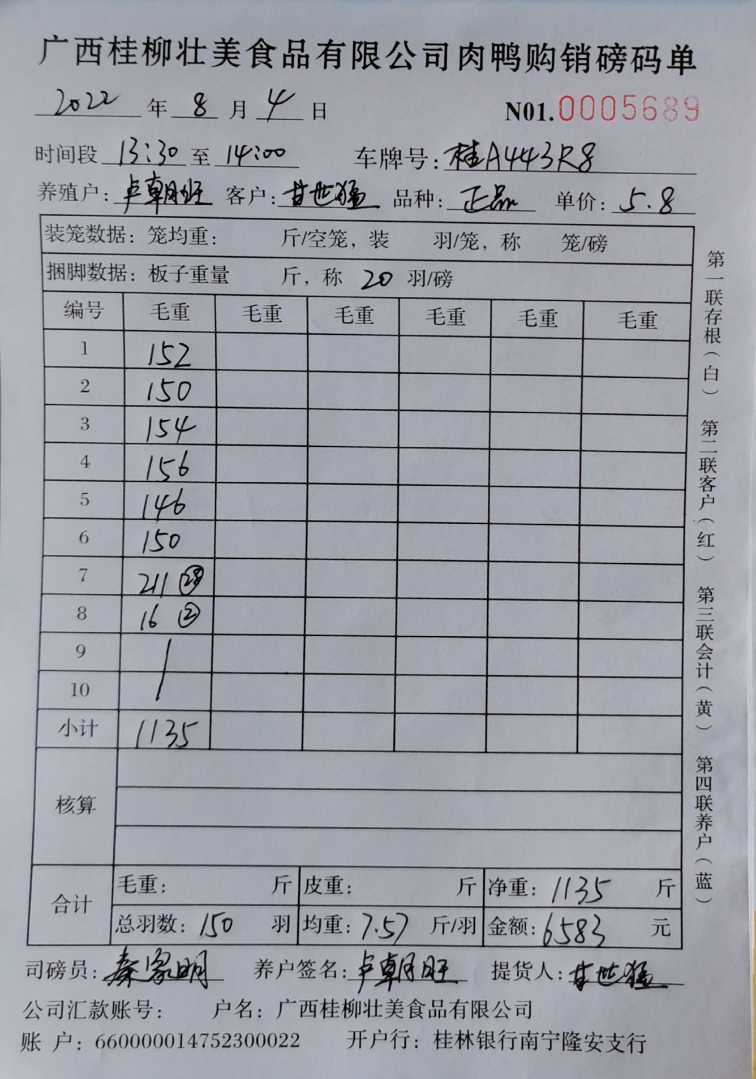 广西桂柳壮美食品有限公司肉鸭购销磅码单
2022 年 8 月 4 日 N01.0005689
时间段 13:30 至 14:00 车牌号: 桂A443R8
养殖户: 卢朝旺 客户: 甘世猛 品种: 正品 单价: 5.8
装笼数据: 笼均重: 斤/空笼, 装 羽/笼, 称 笼/磅
捆脚数据: 板子重量 斤, 称 20 羽/磅
编号 毛重 毛重 毛重 毛重 毛重 毛重
1 152
2 150
3 154
4 156
5 146
6 150
7 211 28
8 16 2
9
10
小计 1135
核算
合计
毛重: 斤 皮重: 斤 净重: 1135 斤
总羽数: 150 羽 均重: 7.57 斤/羽 金额: 6583 元
司磅员: 秦家明 养户签名: 卢朝旺 提货人: 甘世猛
公司汇款账号: 户名: 广西桂柳壮美食品有限公司
账 户: 660000014752300022 开户行: 桂林银行南宁隆安支行
第一联存根(白) 第二联客户(红) 第三联会计(黄) 第四联养户(蓝)